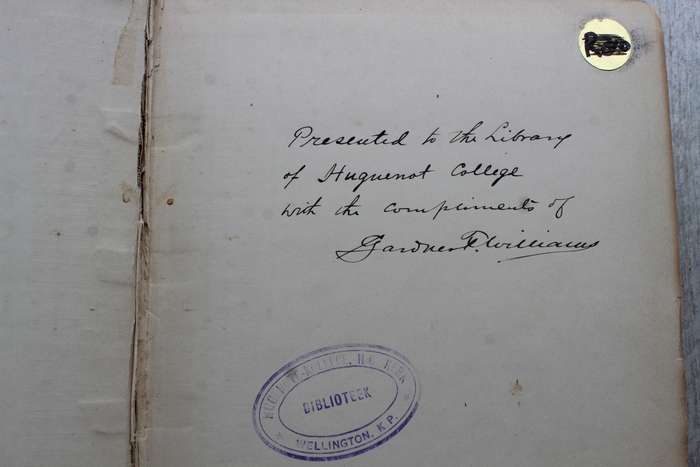 Presented to the Library
of Huguenot College
with the compliments of
Gardner F. Williams
N.G. KERK
BIBLIOTEEK
WELLINGTON, K.P.